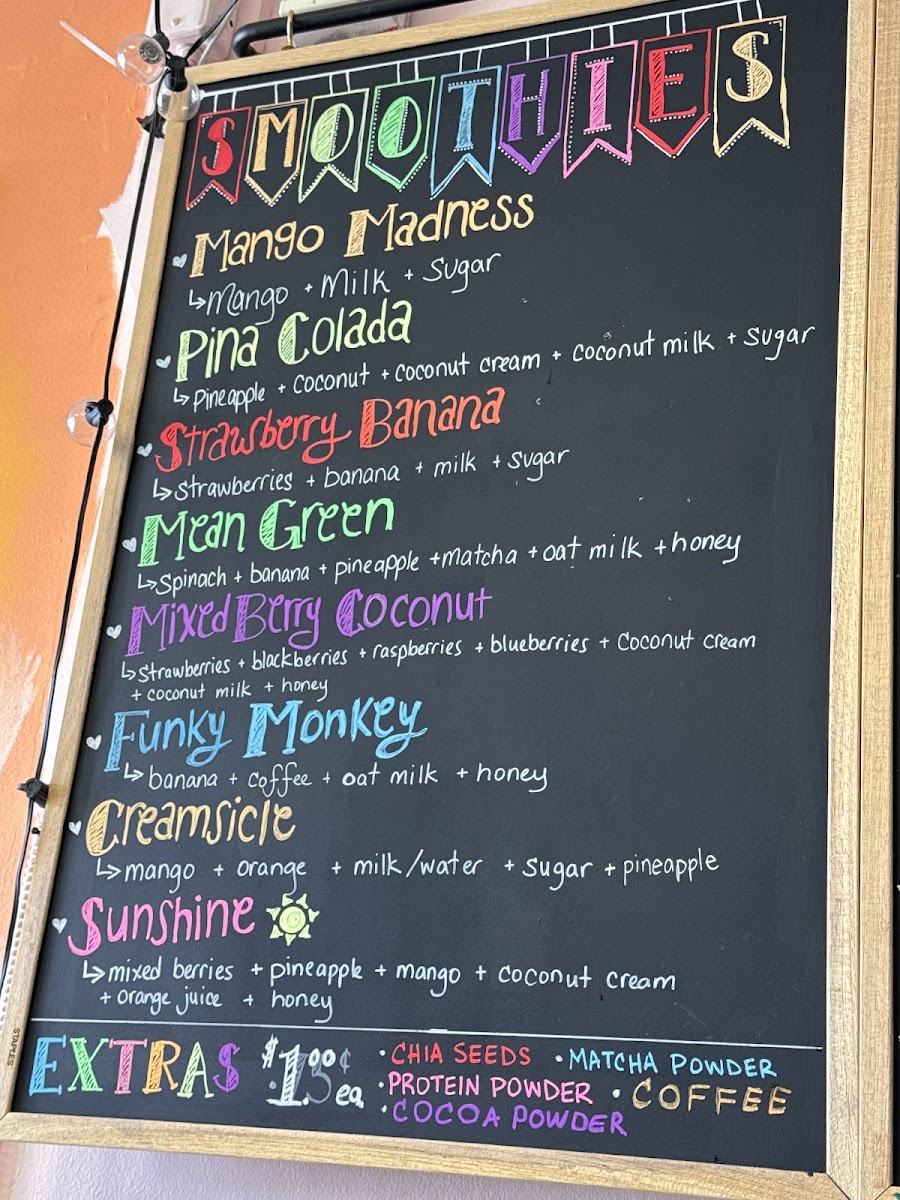 SMOOTHIES
Mango Madness
↳ mango + Milk + sugar
Pina Colada
↳ Pineapple + coconut + coconut cream + coconut milk + sugar
Strawberry Banana
↳ strawberries + banana + milk + sugar
Mean Green
↳ spinach + banana + pineapple + matcha + oat milk + honey
Mixed Berry Coconut
↳ strawberries + blackberries + raspberries + blueberries + coconut cream
+ coconut milk + honey
Funky Monkey
↳ banana + coffee + oat milk + honey
Creamsicle
↳ mango + orange + milk/water + sugar + pineapple
Sunshine
↳ mixed berries + pineapple + mango + coconut cream
+ orange juice + honey
EXTRAS $1.00 ea
• CHIA SEEDS • MATCHA POWDER
• PROTEIN POWDER • COFFEE
• COCOA POWDER
STAPLES